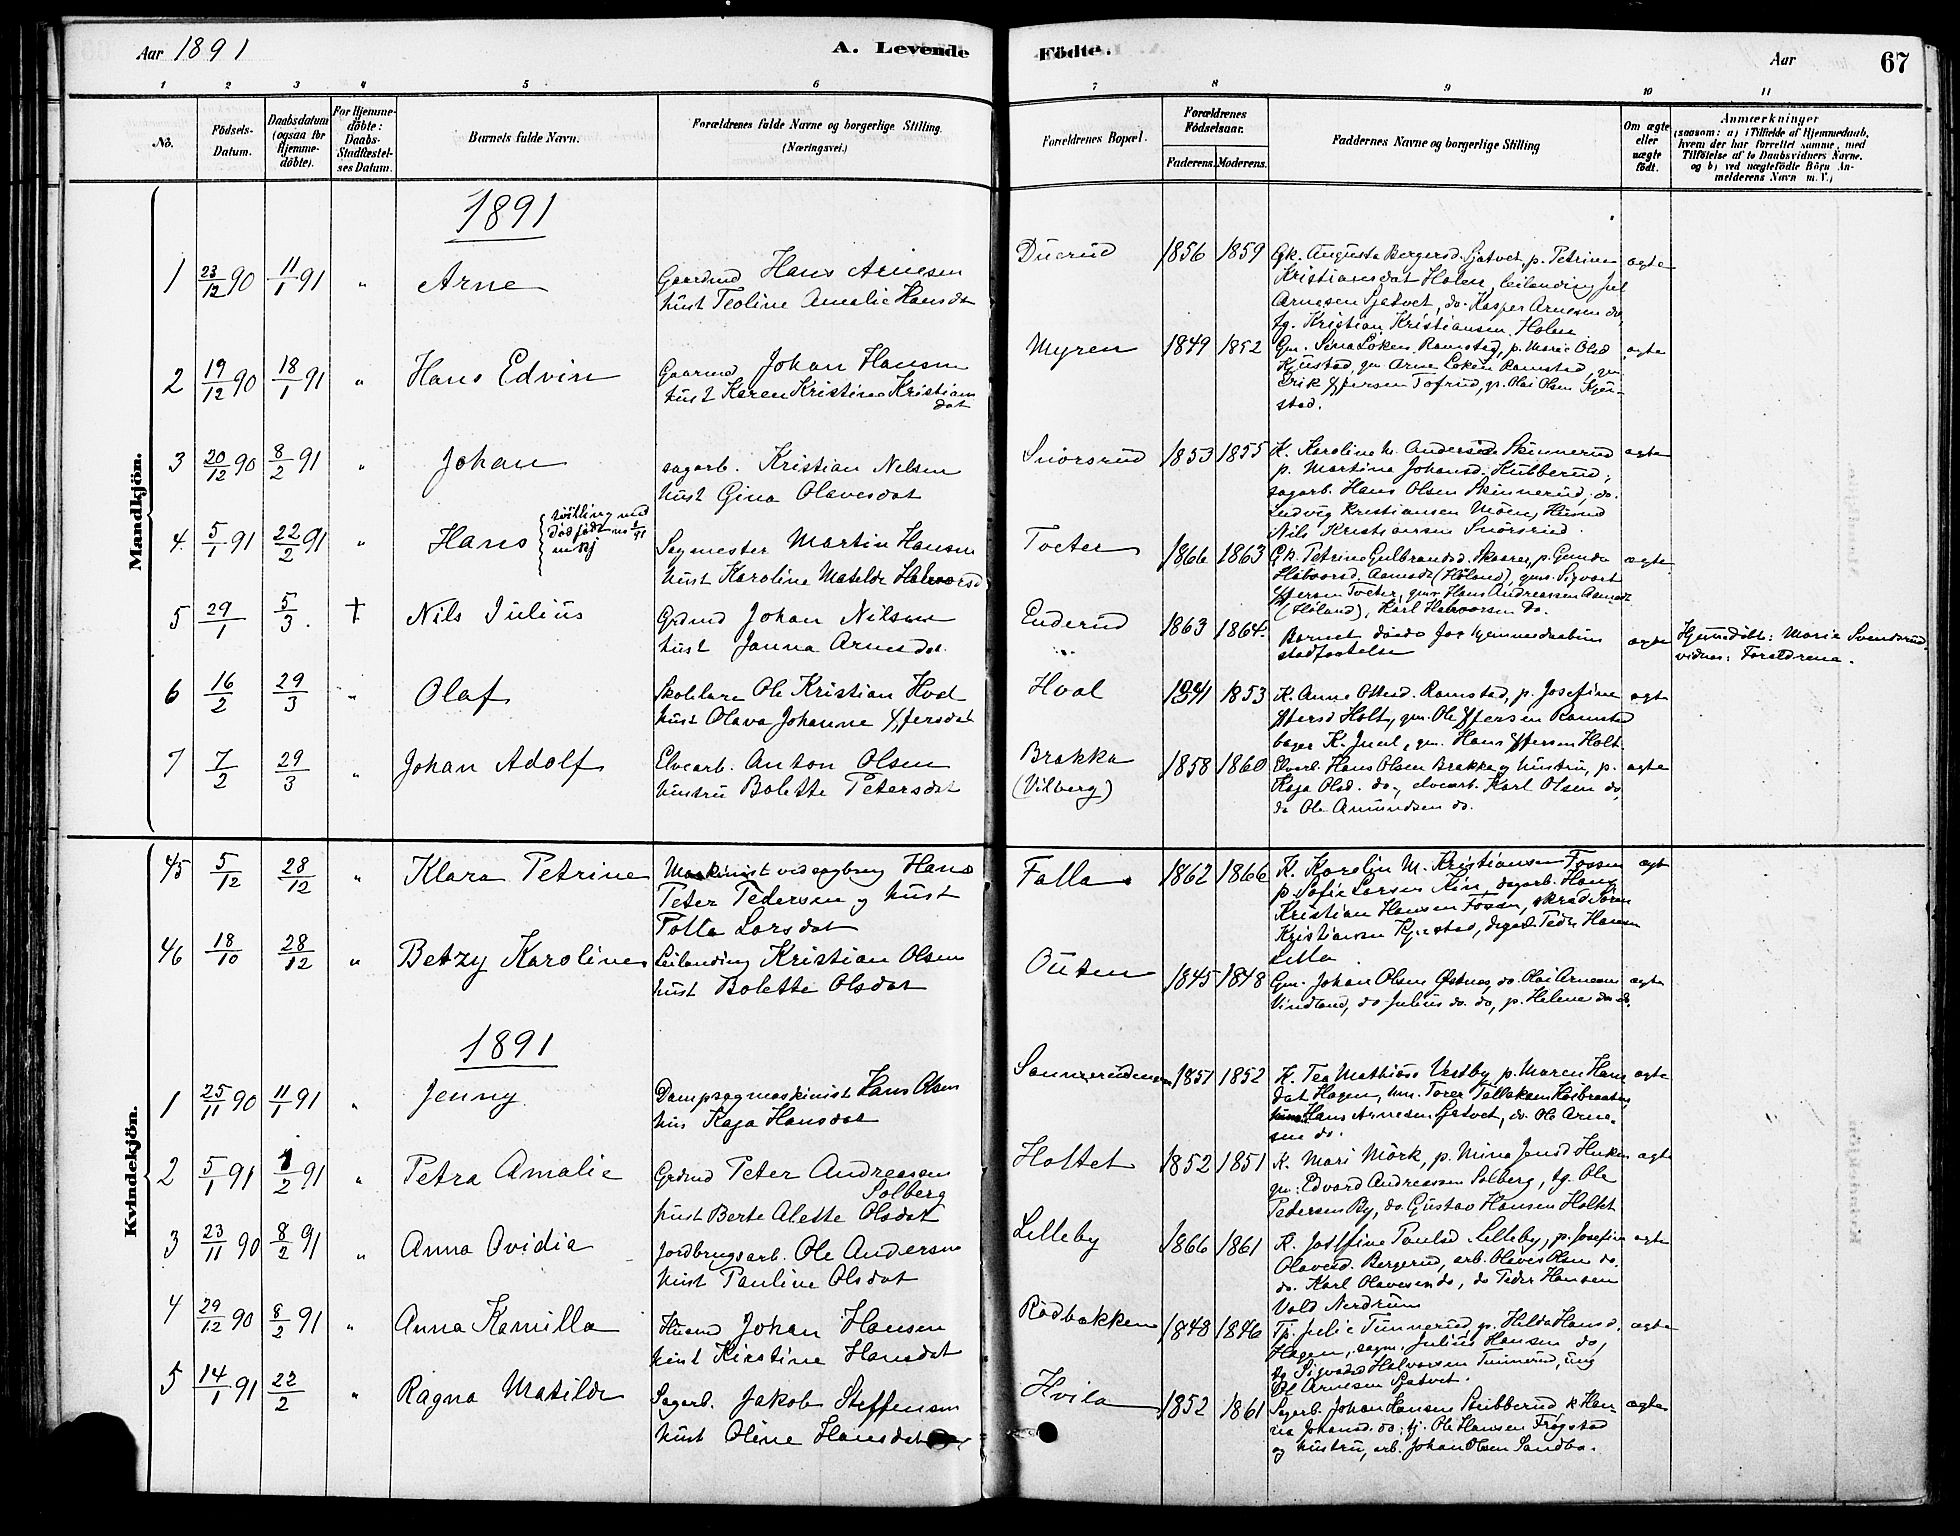 Aar 1891
A. Levende
Födte.
Aar
67
1 2 3 4 5 6 7 8 9 10 11
No.
Födsels-
Datum.
Daabsdatum
(ogsaa for
Hjemme-
döbte).
For Hjemme-
döbte:
Daabs-
Stadfæstel-
ses Datum.
Barnets fulde Navn.
Forældrenes fulde Navne og borgerlige Stilling.
(Næringsvei.)
Forældrenes Bopæl.
Forældrenes
Födselsaar.
Faderens. Moderens.
Faddernes Navne og borgerlige Stilling
Om ægte
eller
uægte
födt.
Anmærkninger
(saasom: a) i Tilfælde af Hjemmedaab,
hvem der har forrettet samme, med
Tilföielse af to Daabsvidners Navne.
og b) ved uægtefödte Börn An-
melderens Navn m. V.)
Mandkjön.
1891
1 23/12 90 11/1 91 " Arne
Gaardmd Hans Arnesen
hust Teoline Amalie Hansdat
1856 1859
Gk. Augusta Bergersd. Sjatvet, p. Petrine
Kristiansdat Holen, leilending Jul
Arnesen Sjatvet, do. Kasper Arnesen do,
tg. Kristian Kristiansen Holen
ægte
2 19/12 90 18/1 91 " Hans Edvin
Gaarmd Johan Hansen
hust Karen Kristine Kristians
dat
Myren 1849 1852
Gm. Sina Løken Ramstad, p. Marie Olsd
Kjustad, gm Arne Løken Ramstad, gm
Erik Iffersen Tofrud, gs. Olai Olsen Kjus-
stad.
ægte
3 20/12 90 8/2 91 " Johan
sagarb. Kristian Nilsen
hust Gina Olavesdat
Snorsrud 1853 1855
K. Karoline M. Andersdt Skinnerud
p. Martina Johansd. Kubberud,
sagarb. Hans Olsen Skinnerud, do.
Ludvig Kristiansen Moen, Husmd
Nils Kristiansen Snorsrud
ægte
4. 5/1 91 22/2 91 " Hans
tvilling med
dödfödt no 2/91
mkj
Sagmester Martin Hansen
hust Karoline Matilde Halvorsd
Toeter 1866 1863
Gk. Petrine Gulbrandsd. Skaarer, p. Gunda
Halvorsd. Aamodt (Höland), gms. Sigvart
Iffersen Toeter, gms. Hans Andreassen Aamodt
(Höland), Karl Halvorsen do.
ægte
5 29/1 5/3. + Nils Julius
Grdmd Johan Nilsen
hust Janna Arnesdat
Enderud 1863 1864.
Barnet döde för hjemmedaabens
stadfæstelse
ægte
Hjemmedöbt: Marie Svendsrud,
vidner: Forældrene.
6 16/2 29/3 " Olaf
Skolelærer Ole Kristian Hval
hust Olava Johanne Iffersdat
Hval 1841 1853
K. Anne Ottersd. Ramstad, p. Josefine
Iffersd Holt, gm. Ole Iffersen Ramstad
bager K. Juul, gm. Hans Iffersen Holt
ægte
7 7/2 29/3 " Johan Adolf
Elvearb. Anton Olsen
hustru Bolette Petersdat
Brakka
(Vilberg)
1858 1860
Elvarb. Hans Olsen Brakka og hustru, p.
Kaja Olsd. do., elvearb. Karl Olsen do,
do Ole Amundsen do.
ægte
Kvindekjön.
45 5/12 28/12 " Klara Petrine
Maskinist ved sagbrug Hans
Peter Pedersen og hust
Tolla Larsdat
Falla 1862 1866
K. Karolin M. Kristiansen Fossen
p. Sofie Larsen Lin, dagarb. Hans
Kristian Hansen Fossen, skræd Søren
Kristiansen Kjustad, dagarb Peder Hansen
Lilla
ægt
46 18/10 28/12 " Betzy Karoline
Leilending Kristian Olsen
hust Bolette Olsdat
Outen 1845 1848
Gm. Johan Olsen Østnes, do. Olai Arnesen
Vindland, do Julius do. do, p. Helene do do.
ægte
1891
1 25/11 90 11/1 91 " Jenny
Dampsagmaskinist Hans Olsen
hus Kaja Hansdat
1851 1852
K. Tea Mathiass Vestby, p. Maren Hans
dat Hagen, um. Torer Tollaksen
Hans Arnesen Sjatvet, do. Ole Arne-
sen do.
ægte
2 5/1 91 1/2 91 " Petra Amalie
Grdmd Peter Andreasen
Solberg
hust Berte Alette Olsdat
Holtet 1852 1851
K. Mari Mörk, p. Mina Jensd Huken
gm. Edvard Andreassen Solberg, tg. Ole
Pedersen By, do Gustav Hansen Holtet
ægte
3 23/11 90 8/2 91 " Anna Ovidia
Jordbrugsarb. Ole Andersen
hust Pauline Olsdat
Lilleby 1866 1861
K. Josefine Paulsd Lilleby, p. Josefine
Olavesd. Bergerud, arb. Olaves Olsen do.
do. Karl Olavesen do, do Peder Hansen
Vold Nerdrum
ægte
4 29/12 90 8/2 91 " Anna Kamilla
Husmd Johan Hansen
hust Kirstine Hansdat
Rödbakken 1848 1846
Tj. Julie Tunnerud, p. Hilda Hansd.
Hagen, sagm. Julius Hansen do,
tg Sigvard Halvorsen Tunnerud, ung
Ol. Arnesen Sjatvet.
ægte
5 14/1 91 22/2 " Ragna Matilde
Sagarb. Jakob Steffensen
hust Oline Hansdat
Hvila 1852 1861
Sagarb. Johan Hansen Stubberud k Han-
na Johansd. do; tj. Ole Hansen Frøgstad
og hustru, arb. Johan Olsen Sandbo.
ægte